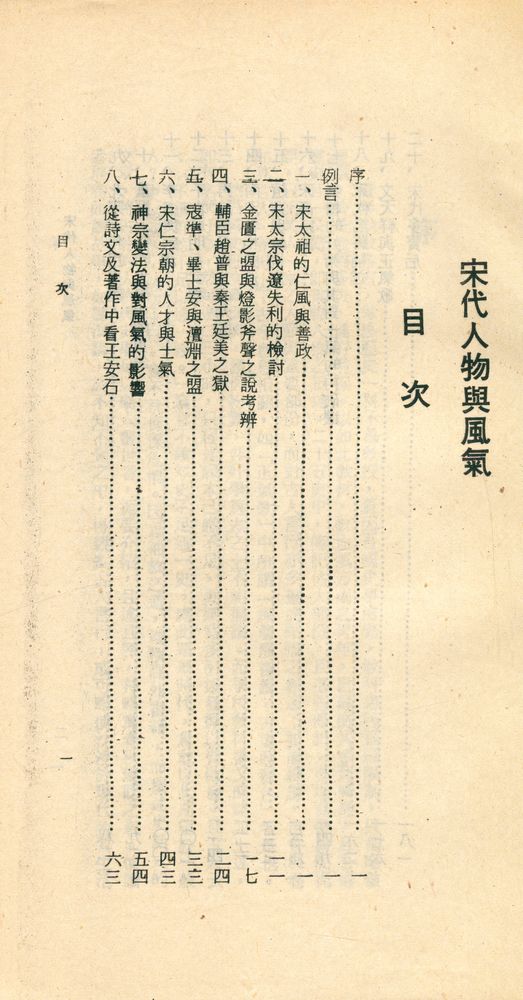 宋代人物與風氣
目 次
序……一
例言……一
一、宋太祖的仁風與善政……一
二、宋太宗伐遼失利的檢討……一一
三、金匱之盟與燈影斧聲之說考辨……一七
四、輔臣趙普與秦王廷美之獄……二四
五、寇準、畢士安與澶淵之盟……三三
六、宋仁宗朝的人才與士氣……四三
七、神宗變法與對風氣的影響……五四
八、從詩文及著作中看王安石……六三
目 次
一